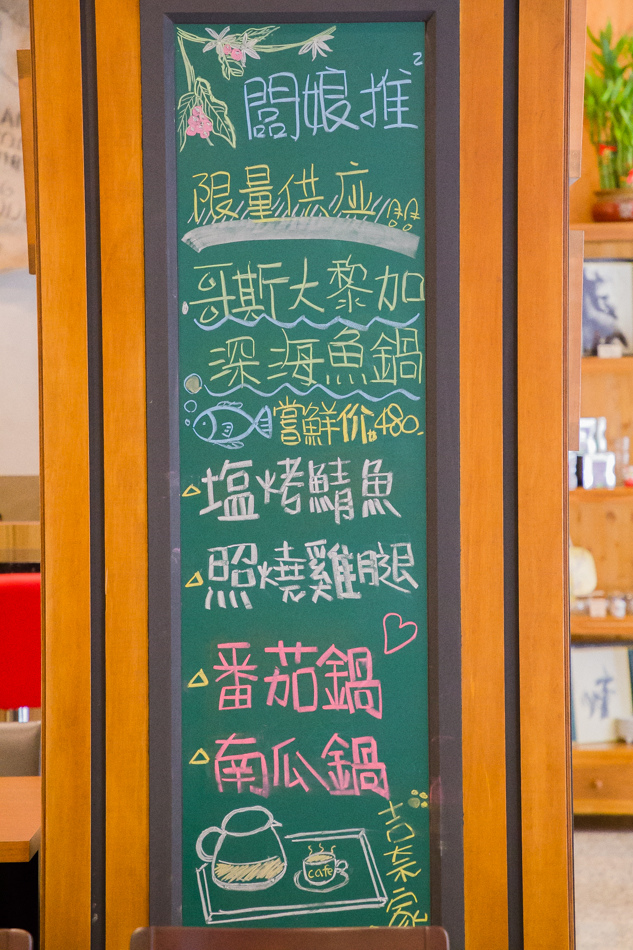 闆娘推²
限量供应
哥斯大黎加
深海魚鍋
嘗鮮价$480.
塩烤鯖魚
照燒雞腿
番茄鍋
南瓜鍋
cafe
吉奈家